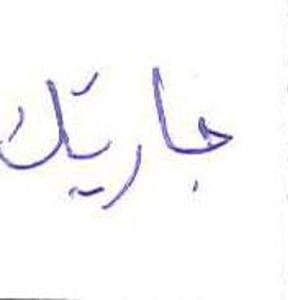 جاريتك